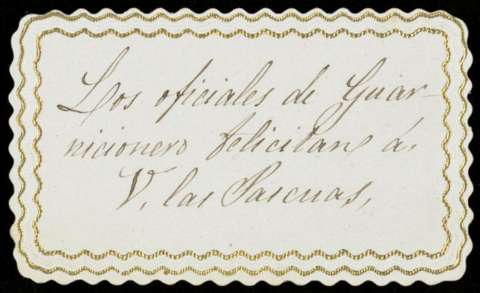 Los oficiales de Guar-
nicionero felicitan á
V. las Pascuas,